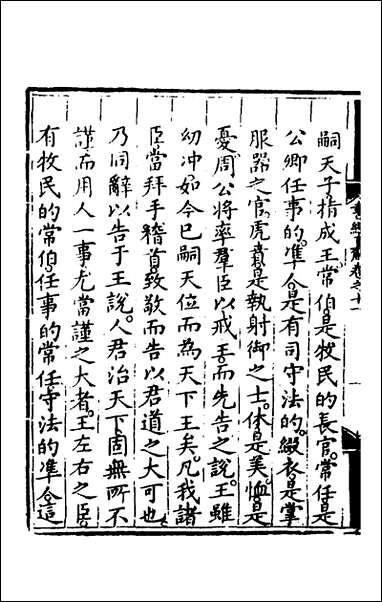 嗣天子指成王常伯是牧民的長官常任是
公卿任事的準人是有司守法的綴衣是掌
服器之官虎賁是執射御之士休是美恤是
憂周公將率羣臣以戒王而先告之說王雖
幼冲如今已嗣天位而為天下王矣凡我諸
臣當拜手稽首致敬而告以君道之大可也
乃同辭以告于王說人君治天下固無所不
謹而用人一事尤當謹之大者王左右之臣
有牧民的常伯任事的常任守法的準人這